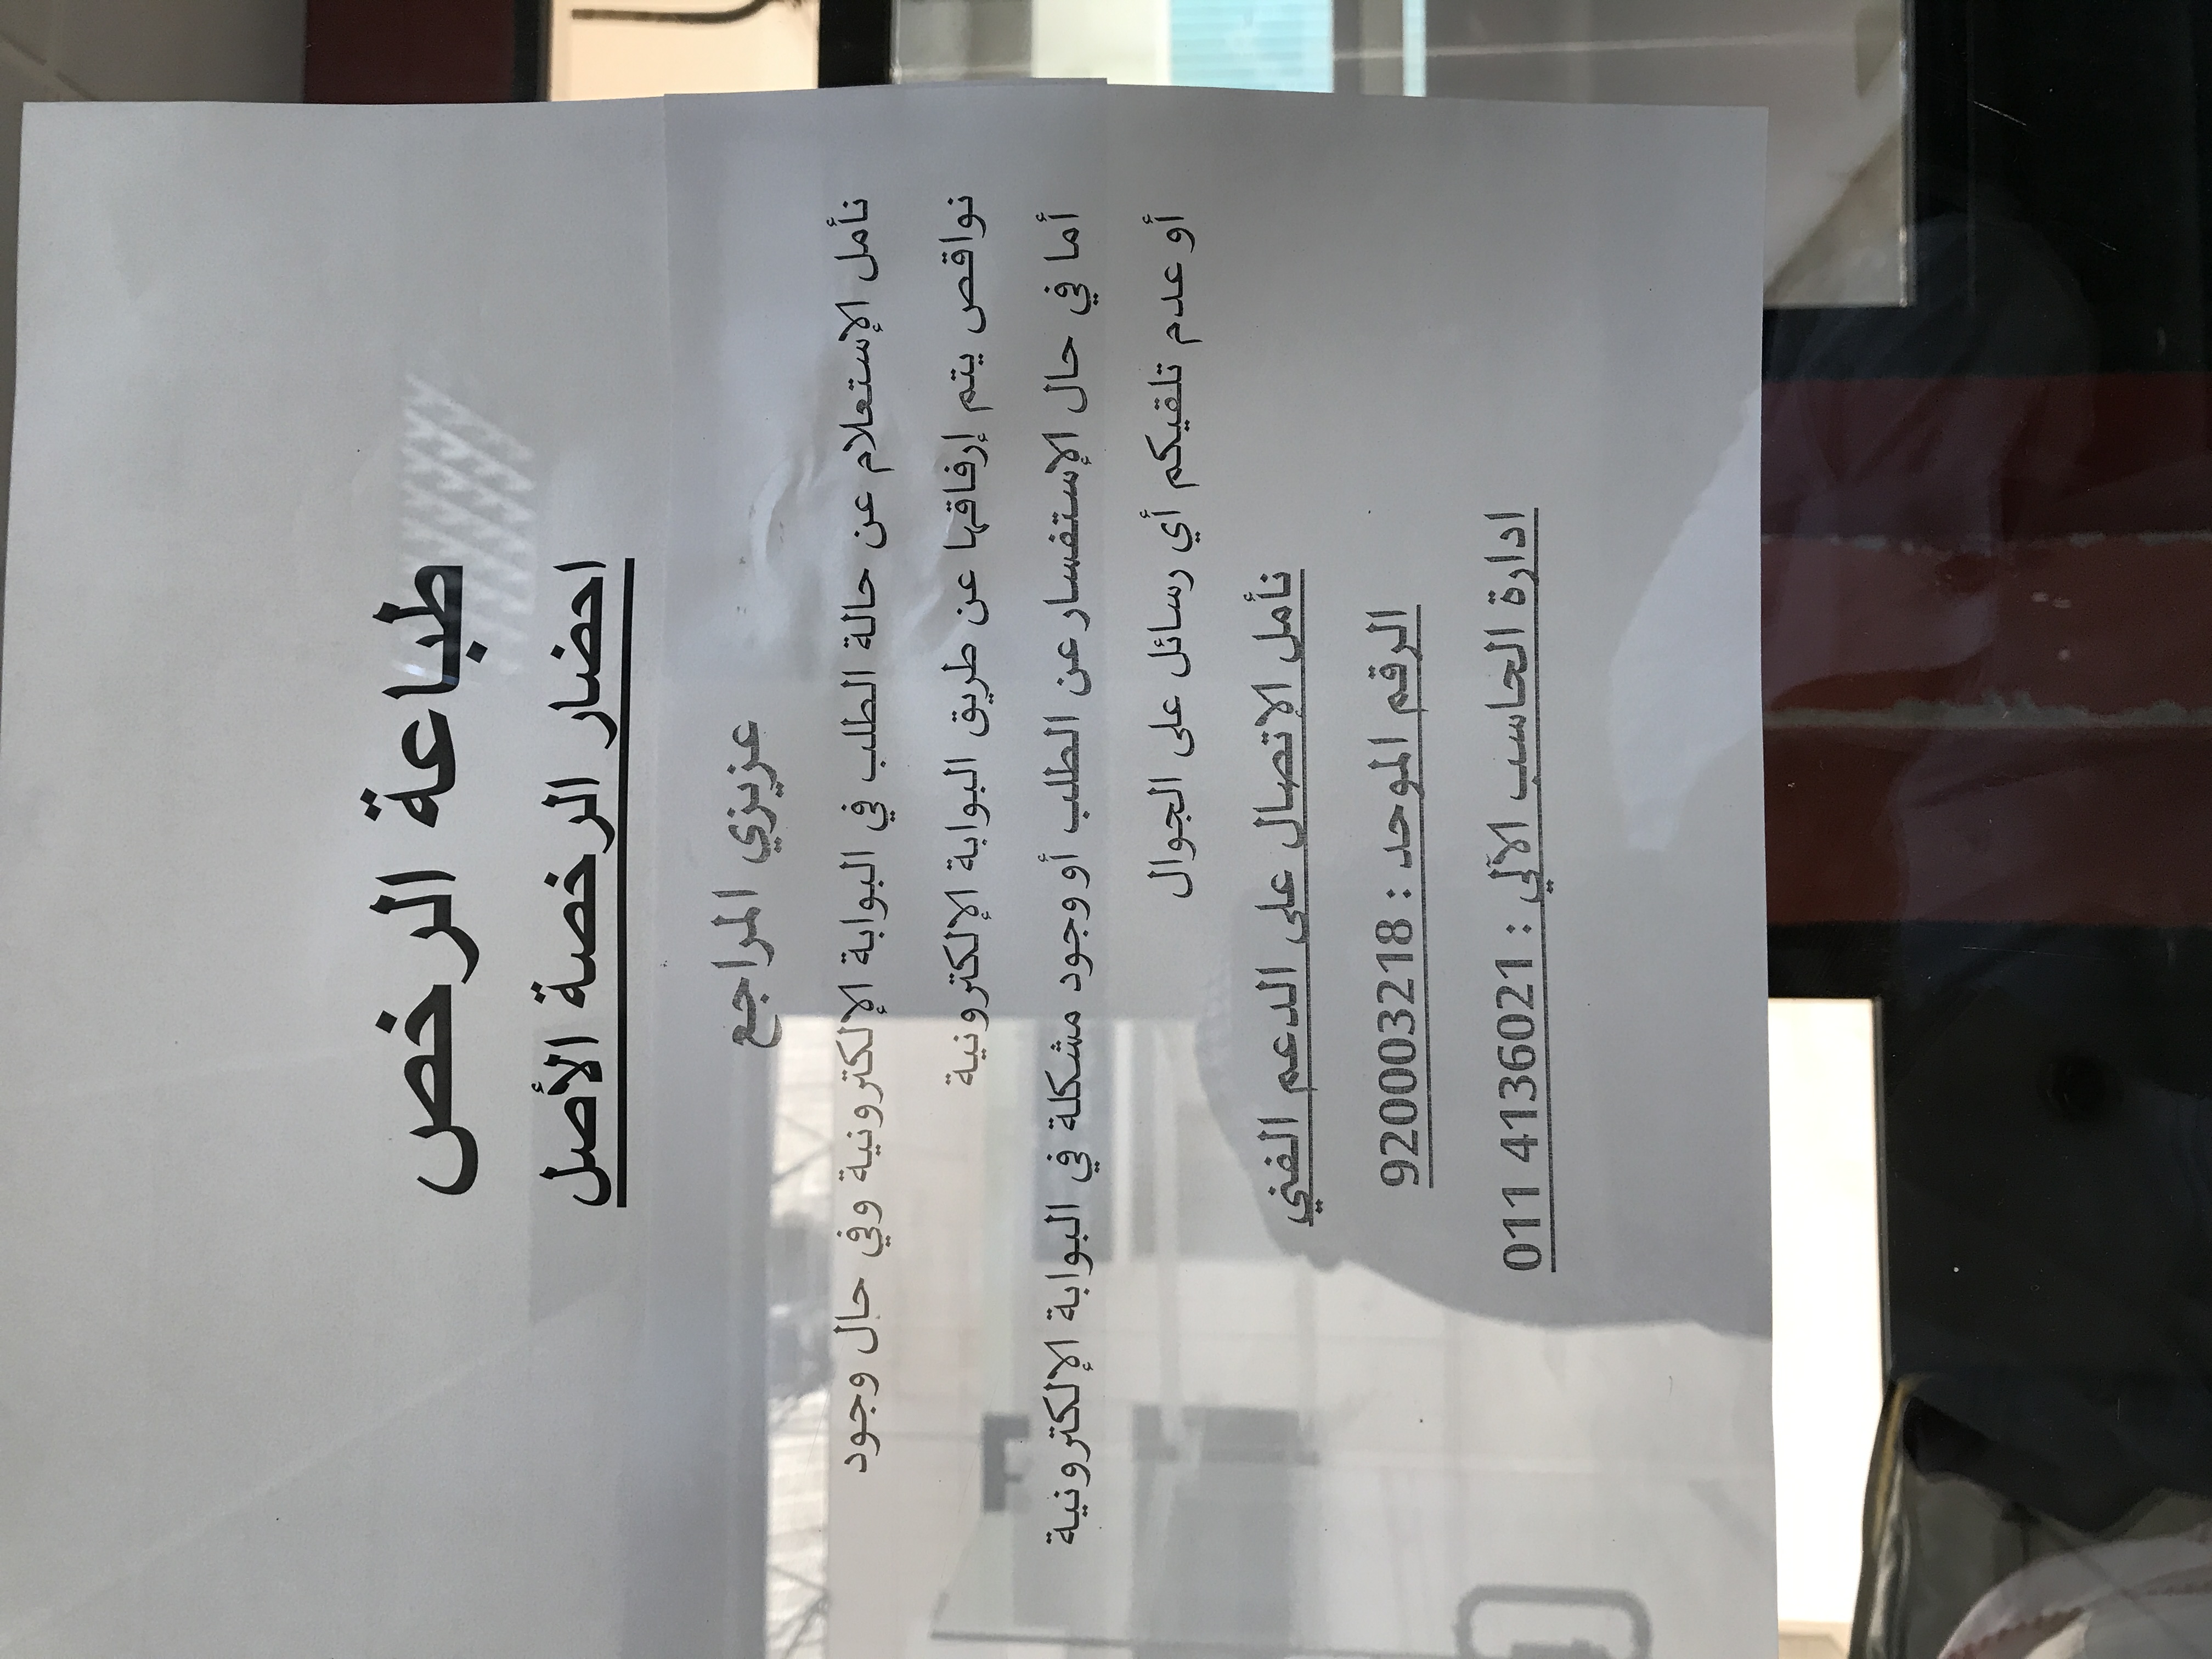 طباعة الرخص
احضار الرخصة الأصل
عزيزي المراجع
نأمل الإستعلام عن حالة الطلب في البوابة الإلكترونية وفي حال وجود
نواقص يتم إرفاقها عن طريق البوابة الإلكترونية
أما في حال الإستفسار عن الطلب أو وجود مشكلة في البوابة الإلكترونية
أو عدم تلقيكم أي رسائل على الجوال
نأمل الإتصال على الدعم الفني
الرقم الموحد : 920003218
ادارة الحاسب الآلي : 011 4136021